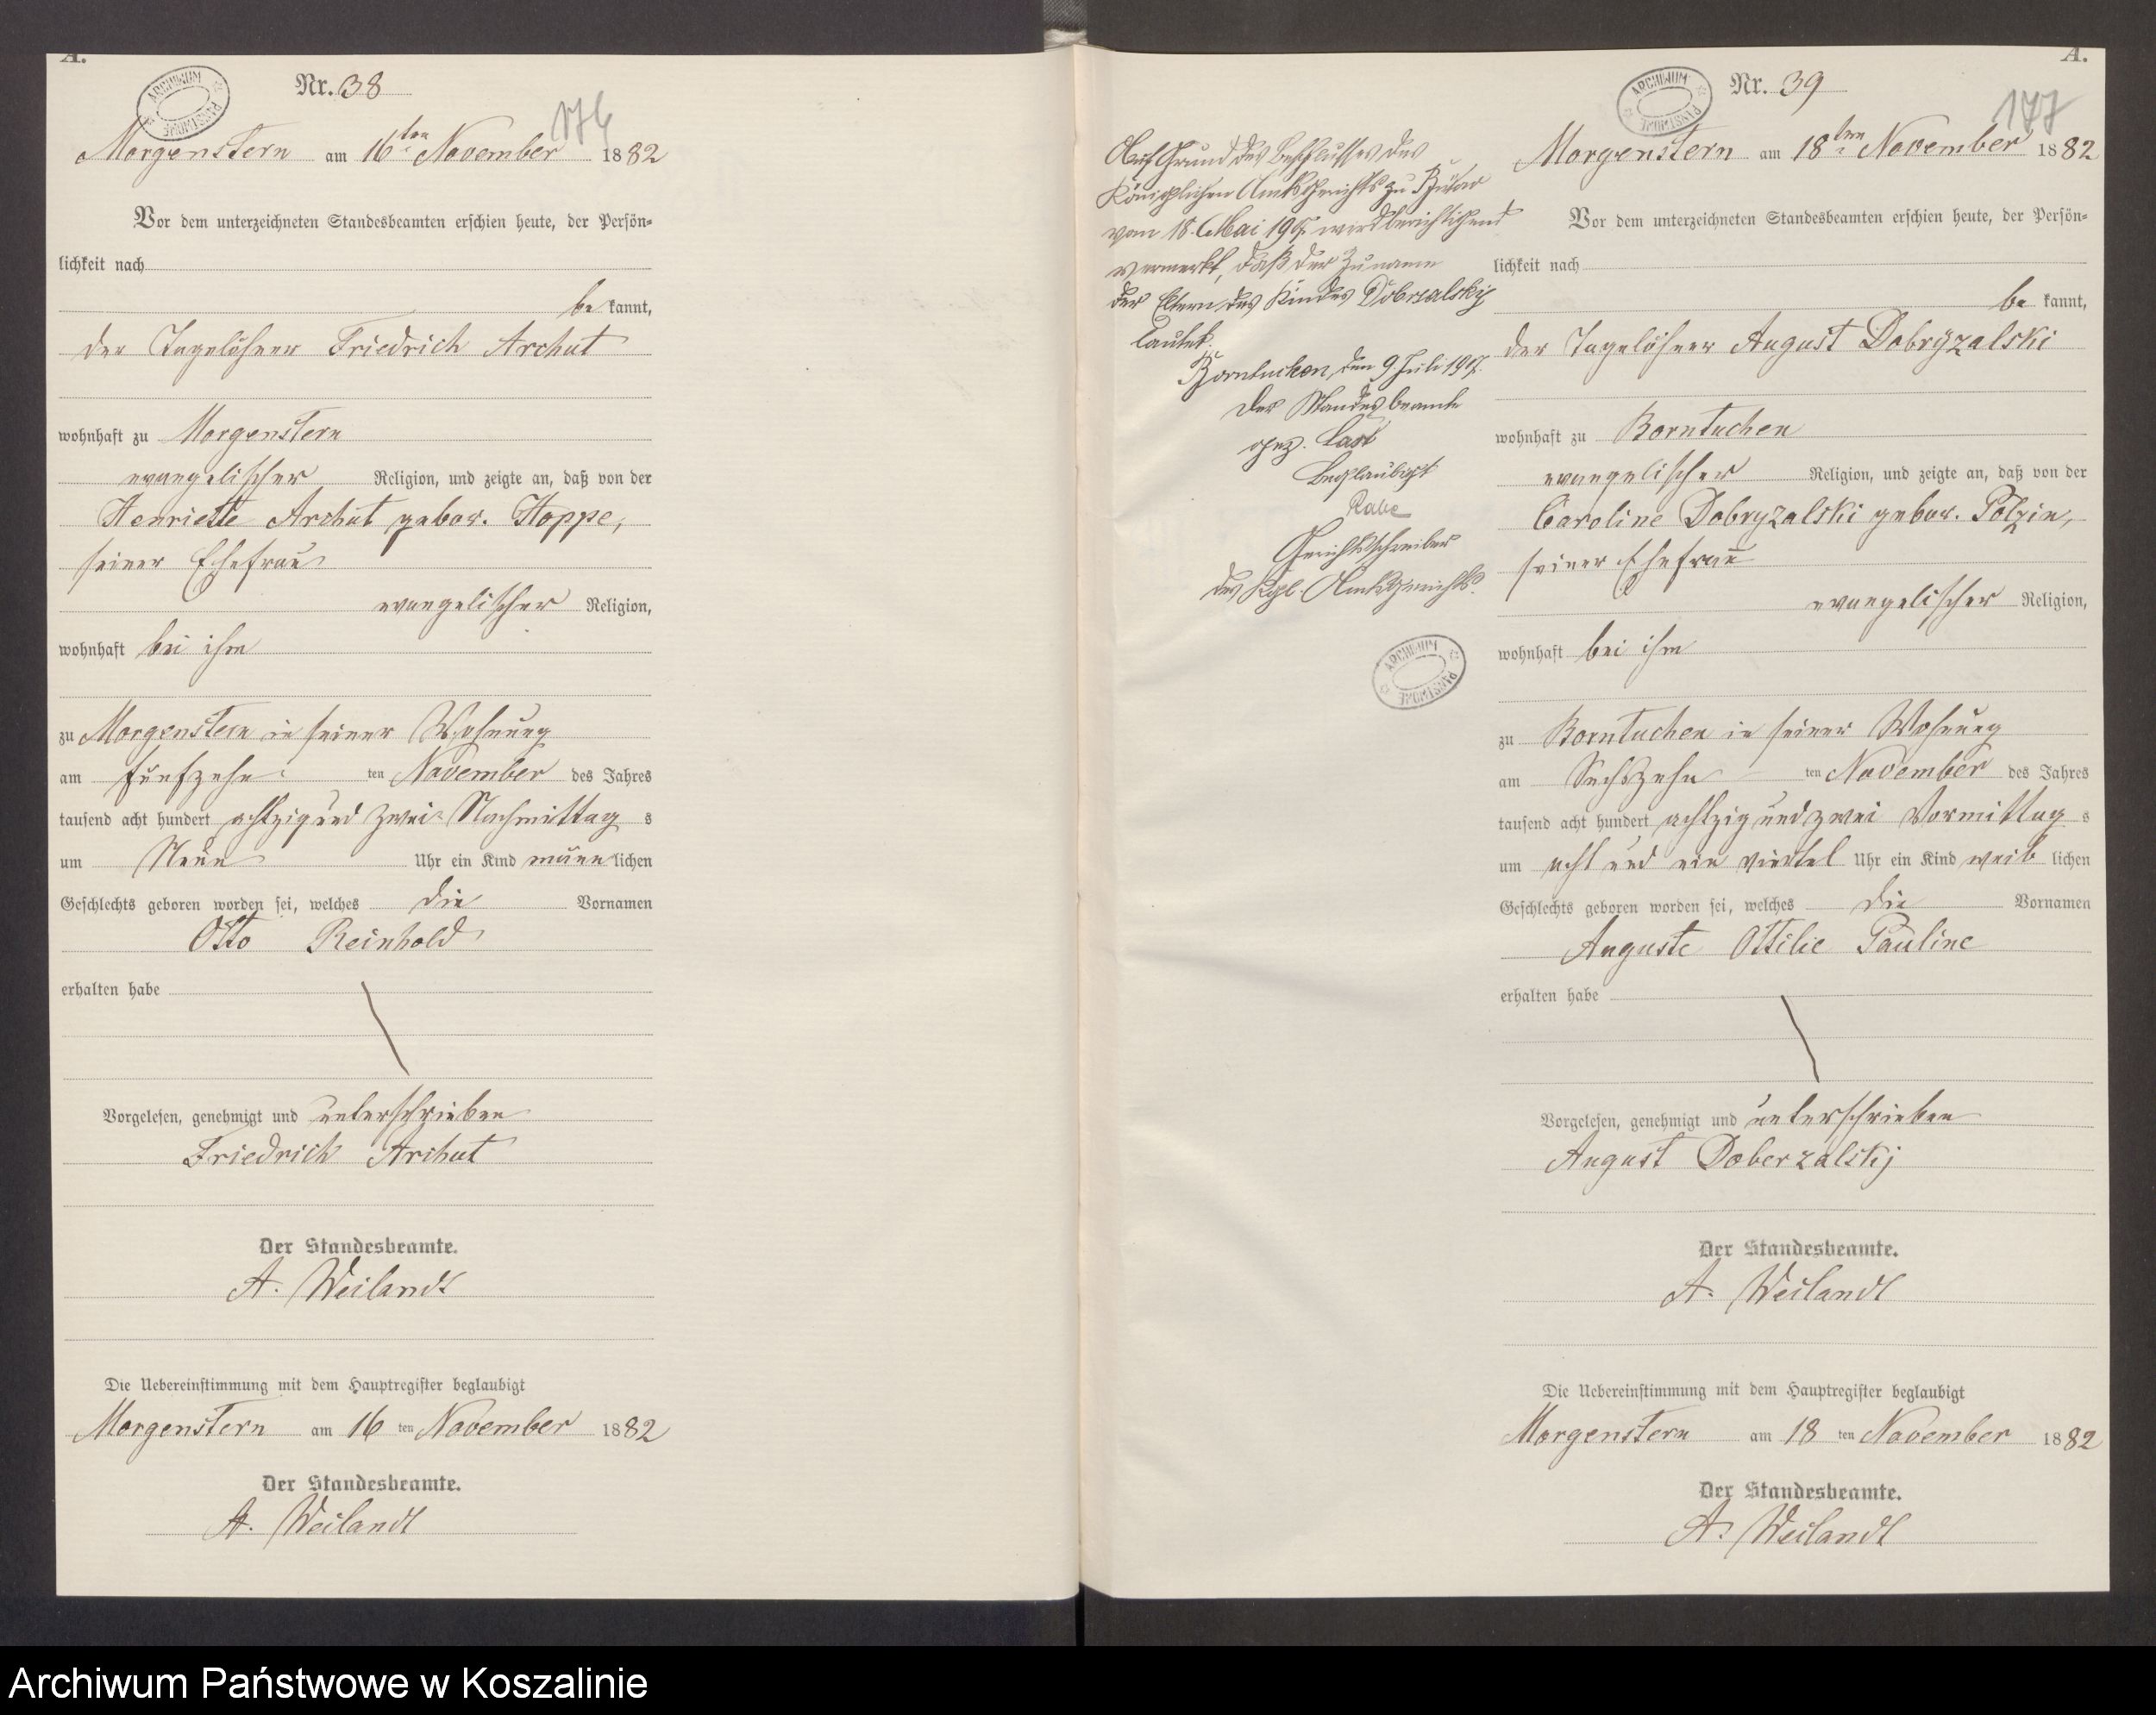 A.
Nr. 38
176
Morgenstern am 16ten November 1882
Vor dem unterzeichneten Standesbeamten erschien heute, der Persön-
lichkeit nach
be kannt,
der Tagelöhner Friedrich Archut
wohnhaft zu Morgenstern
evangelischer Religion, und zeigte an, daß von der
Henriette Archut gebor. Hoppe,
seiner Ehefrau
evangelischer Religion,
wohnhaft bei ihm
zu Morgenstern in seiner Wohnung
am fünfzehn ten November des Jahres
tausend acht hundert achtzig und zwei Nachmittag s
um Neun Uhr ein Kind männlichen
Geschlechts geboren worden sei, welches die Vornamen
Otto Reinhold
erhalten habe
Vorgelesen, genehmigt und unterschrieben
Friedrich Archut
Der Standesbeamte.
A. Weilandt
Die Uebereinstimmung mit dem Hauptregister beglaubigt
Morgenstern am 16 ten November 1882
Der Standesbeamte.
A. Weilandt
Auf Grund des Beschlusses des
Königlichen Amtsgerichts zu Bütow
vom 18. Mai 1907 wird berichtigend
vermerkt, daß der Zuname
der Eltern des Kindes Dobrsalskij
lautet.
Borntuchen, den 9. Juli 1907.
Der Standesbeamte
gez.
Beglaubigt
Rabe
Gerichtsschreiber
des Kgl. Amtsgerichts.
ARCHIWUM PAŃSTWOWE
A.
Nr. 39
177
Morgenstern am 18ten November 1882
Vor dem unterzeichneten Standesbeamten erschien heute, der Persön-
lichkeit nach
be kannt,
der Tagelöhner August Dobryzalski
wohnhaft zu Borntuchen
evangelischer Religion, und zeigte an, daß von der
Caroline Dobryzalski gebor. Pölzin,
seiner Ehefrau
evangelischer Religion,
wohnhaft bei ihm
zu Borntuchen in seiner Wohnung
am Sechszehn ten November des Jahres
tausend acht hundert achtzig und zwei Vormittag s
um acht und ein viertel Uhr ein Kind weib lichen
Geschlechts geboren worden sei, welches die Vornamen
Auguste Ottilie Pauline
erhalten habe
Vorgelesen, genehmigt und unterschrieben
August Doberzalskij
Der Standesbeamte.
A. Weilandt
Die Uebereinstimmung mit dem Hauptregister beglaubigt
Morgenstern am 18 ten November 1882
Der Standesbeamte.
A. Weilandt
Archiwum Państwowe w Koszalinie